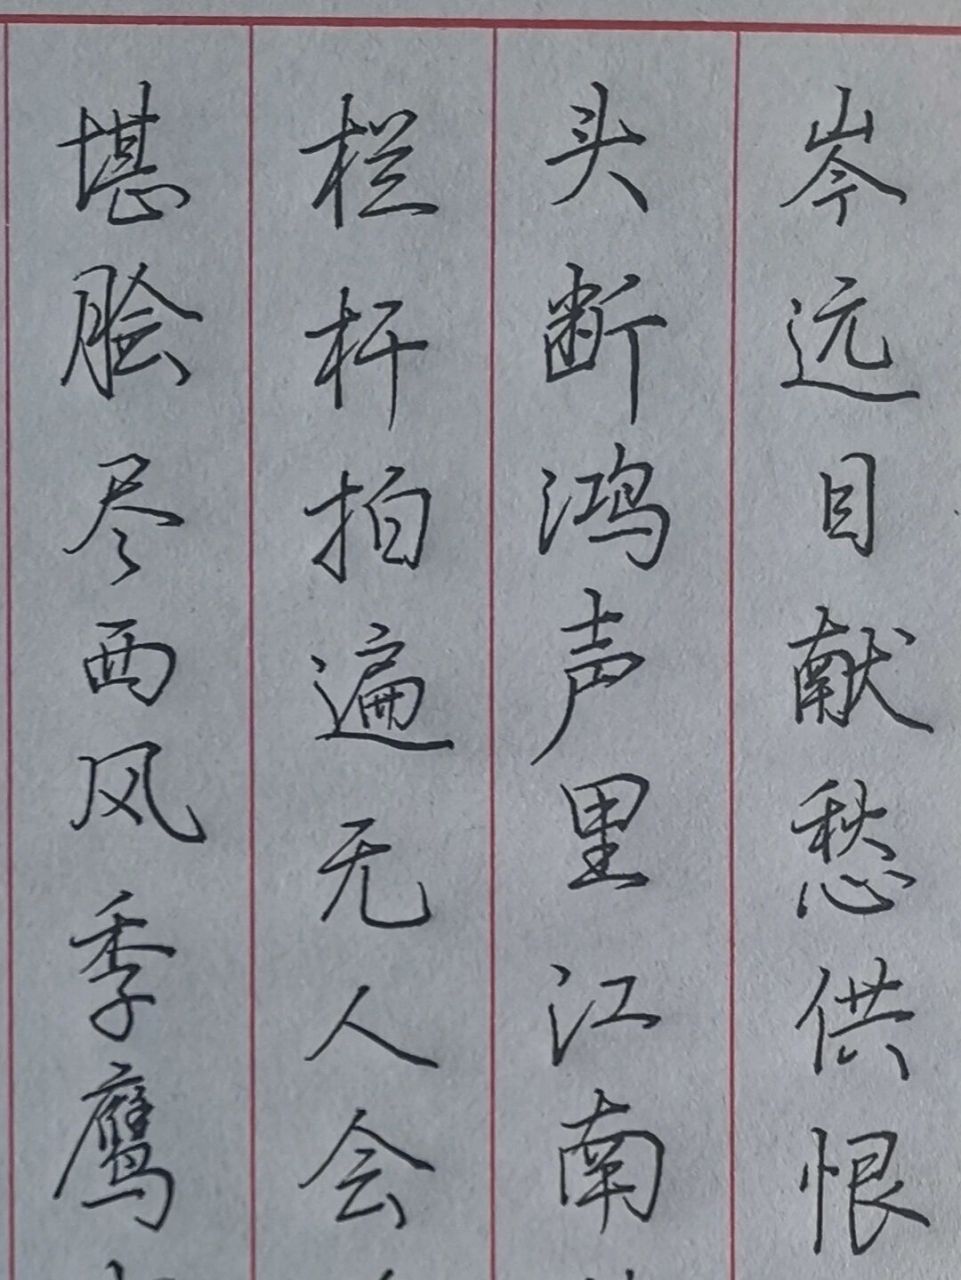 岑远目献愁供恨
头断鸿声里江南
栏杆拍遍无人会
堪脍尽西风季鹰